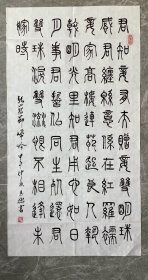 君知妾有夫贈妾雙明珠
感君纏綿意繫在紅羅襦
妾家高樓連苑起良人
執戟明光裏知君用心如日
月事夫誓擬同生死還君明
珠雙淚垂恨不相逢未
嫁時
張籍節婦吟
書